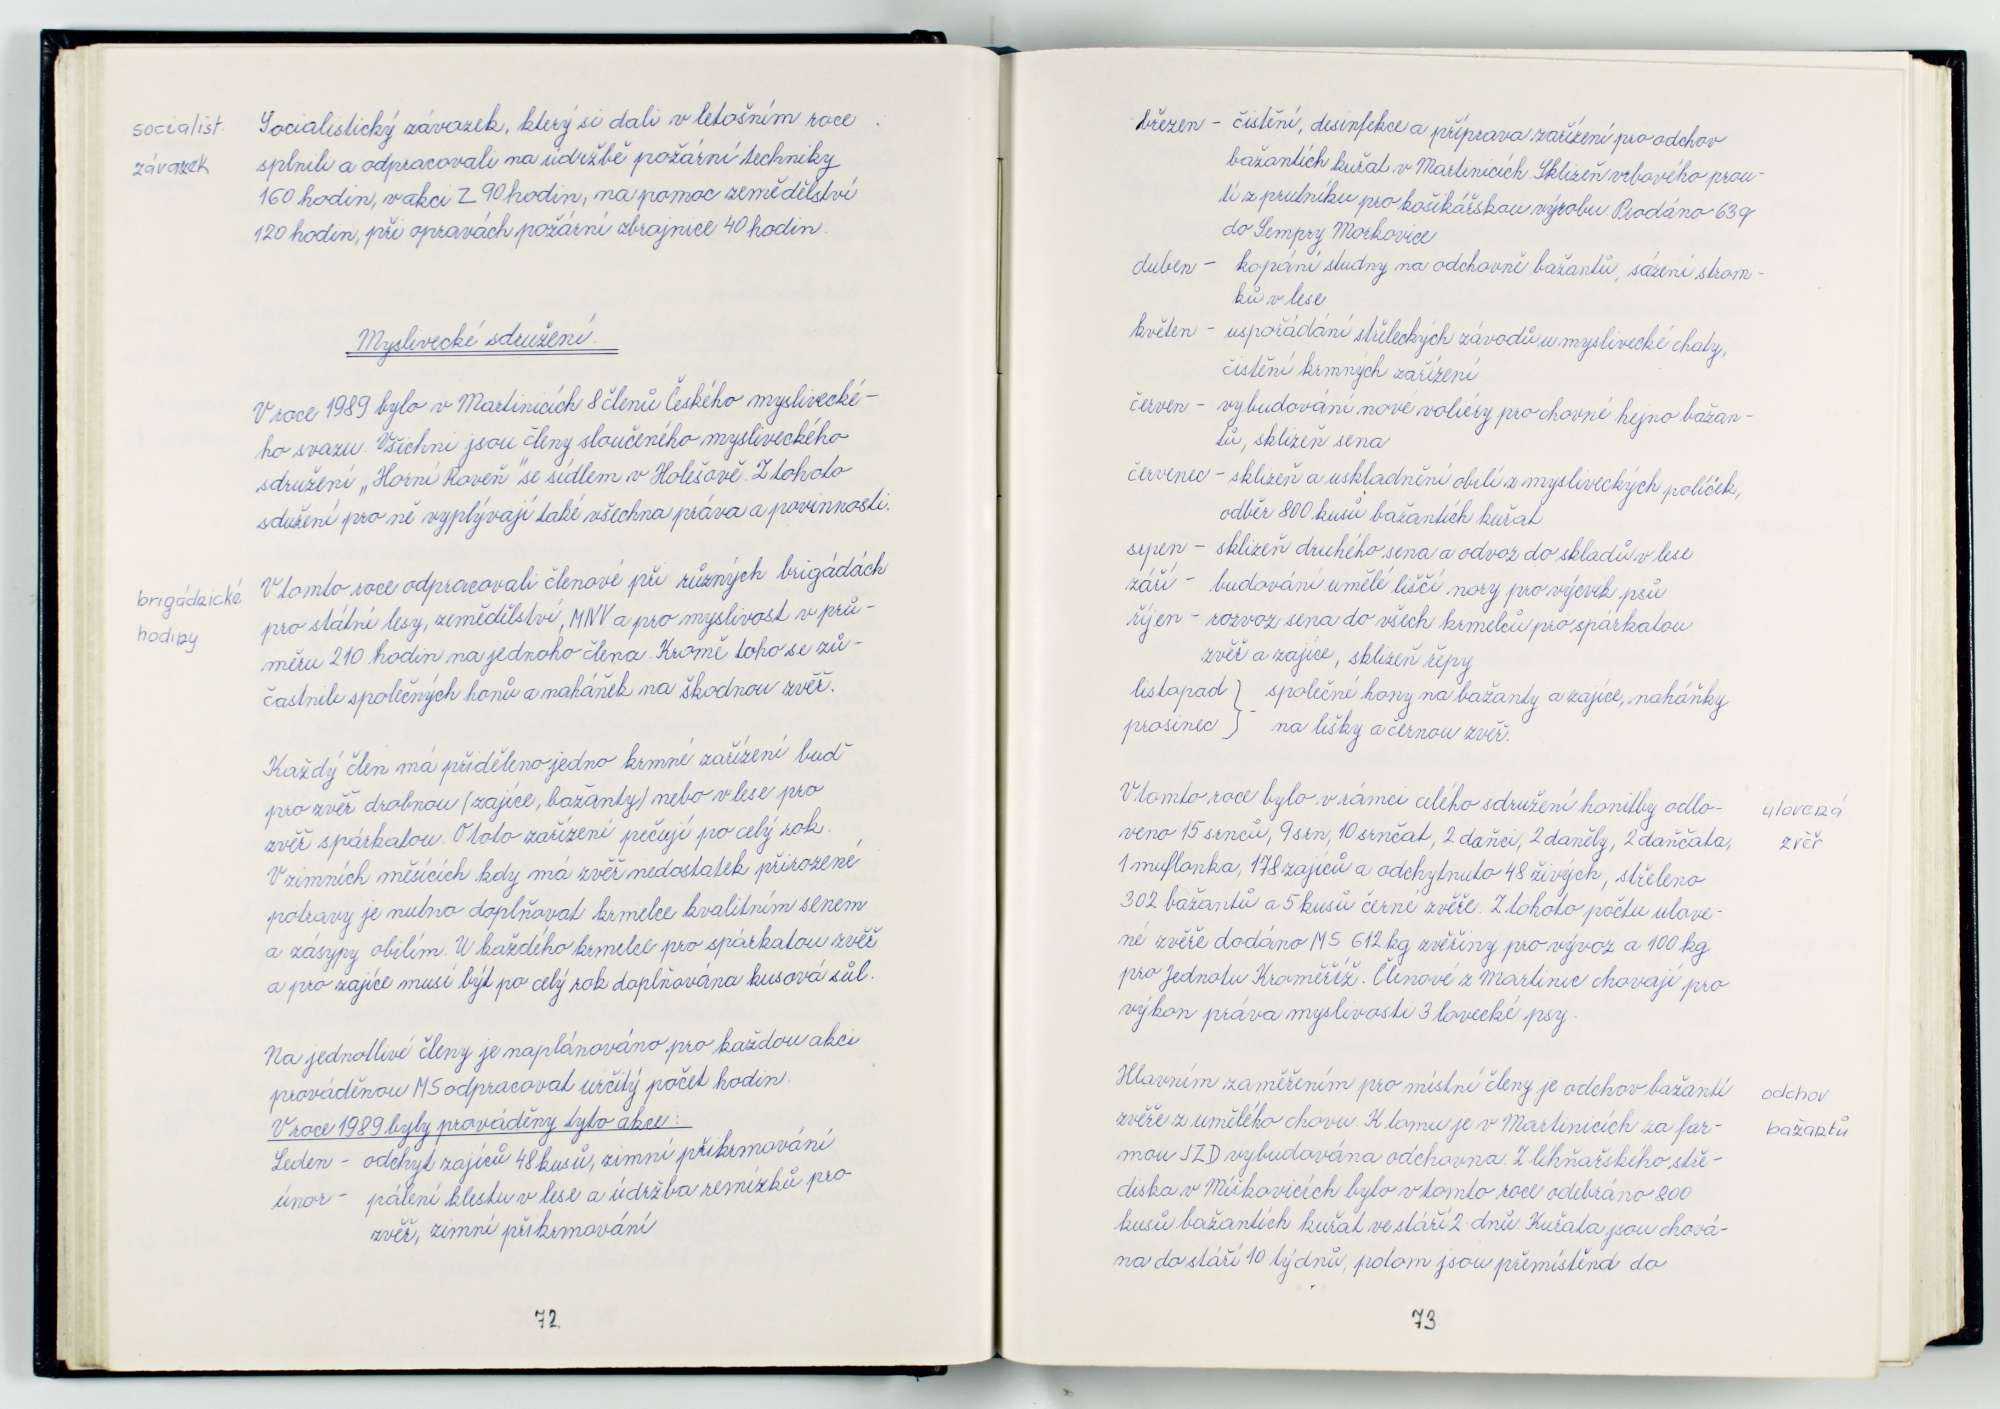 socialist.
závazek
Socialistický závazek, který si dali v letošním roce
splnili a odpracovali na údržbě požární techniky
160 hodin, v akci Z 90 hodin, na pomoc zemědělství
120 hodin, při opravách požární zbrojnice 40 hodin.
Myslivecké sdružení.
V roce 1989 bylo v Martinicích 8 členů Českého myslivecké-
ho svazu. Všichni jsou členy sloučeného mysliveckého
sdružení „Horní Roveň" se sídlem v Holešově. Z tohoto
sdužení pro ně vyplývají také všechna práva a povinnosti.
brigádnické
hodiny
V tomto roce odpracovali členové při různých brigádách
pro státní lesy, zemědělství, MNV a pro myslivost v prů-
měru 210 hodin na jednoho člena. Kromě toho se zú-
častnili společných honů a naháněk na škodnou zvěř.
Každý člen má přiděleno jedno krmné zařízení buď
pro zvěř drobnou (zajíce, bažanty) nebo v lese pro
zvěř spárkatou. O toto zařízení pečují po celý rok.
V zimních měsících kdy má zvěř nedostatek přirozené
potravy je nutno doplňovat krmelce kvalitním senem
a zásypy obilím. U každého krmelce pro spárkatou zvěř
a pro zajíce musí být po celý rok doplňována kusová sůl.
Na jednotlivé členy je naplánováno pro každou akci
prováděnou MS odpracovat určitý počet hodin.
V roce 1989 byly prováděny tyto akce:
Leden - odchyt zajíců 48 kusů, zimní přikrmování
únor - pálení klestu v lese a údržba remízků pro
zvěř, zimní přikrmování
72
březen - čistění, desinfekce a příprava zařízení pro odchov
bažantích kuřat v Martinicích. Sklizeň vrbového prou-
tí z prutníku pro košíkářskou výrobu. Prodáno 63q
do Sempry Morkovice
duben - kopání studny na odchovně bažantů, sázení strom-
ků v lese
květen - uspořádání střeleckých závodů u myslivecké chaty,
čistění krmných zařízení
červen - vybudování nové voliéry pro chovné hejno bažan-
tů, sklizeň sena
červenec - sklizeň a uskladnění obilí z mysliveckých políček,
odběr 800 kusů bažantích kuřat
srpen - sklizeň druhého sena a odvoz do skladů v lese
září - budování umělé liščí nory pro výcvik psů
říjen - rozvoz sena do všech krmelců pro spárkatou
zvěř a zajíce, sklizeň řepy
listopad } společné hony na bažanty a zajíce, naháňky
prosinec } - na lišky a černou zvěř.
V tomto roce bylo v rámci celého sdružení honitby odlo-
veno 15 srnců, 9 srn, 10 srnčat, 2 daňci, 2 daněly, 2 daňčata,
1 muflonka, 178 zajíců a odchytnuto 48 živých, střeleno
302 bažantů a 5 kusů černé zvěře. Z tohoto počtu ulove-
né zvěře dodáno MS 612 kg zvěřiny pro vývoz a 100 kg
pro Jednotu Kroměříž. Členové z Martinic chovají pro
výkon práva myslivosti 3 lovecké psy.
ulovená
zvěř
Hlavním zaměřením pro místní členy je odchov bažantí
zvěře z umělého chovu. K tomu je v Martinicích za far-
mou JZD vybudována odchovna. Z líhňařského stře-
diska v Míškovicích bylo v tomto roce odebráno 800
kusů bažantích kuřat ve stáří 2 dnů. Kuřata jsou chová-
na do stáří 10 týdnů, potom jsou přemístěna do
odchov
bažantů
73